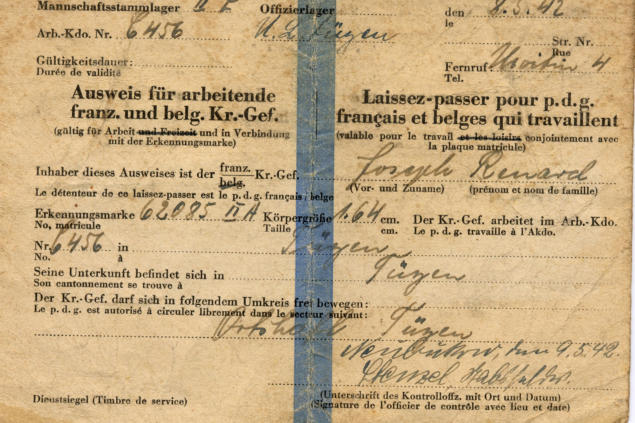 Mannschaftsstammlager II E Offizierlager den 8.5.42
le
Arb.-Kdo. Nr. 6456 Str. Nr.
Rue
Gültigkeitsdauer: Fernruf: 4
Durée de validité Tel.
Ausweis für arbeitende
franz. und belg. Kr.-Gef.
(gültig für Arbeit und Freizeit und in Verbindung
mit der Erkennungsmarke)
Laissez-passer pour p. d. g.
français et belges qui travaillent
(valable pour le travail et les loisirs conjointement avec
la plaque matricule)
Inhaber dieses Ausweises ist der franz. belg. Kr.-Gef. Joseph Renard
Le détenteur de ce laissez-passer est le p. d. g. français / belge (Vor- und Zuname) (prénom et nom de famille)
Erkennungsmarke 62085 II A Körpergröße 1.64 cm. Der Kr.-Gef. arbeitet im Arb.-Kdo.
No. matricule Taille cm. Le p. d. g. travaille à l'Akdo.
Nr. 6456 in Tüzen
No. à
Seine Unterkunft befindet sich in Tüzen
Son cantonnement se trouve à
Der Kr.-Gef. darf sich in folgendem Umkreis frei bewegen:
Le p. d. g. est autorisé à circuler librement dans le secteur suivant:
Tüzen
Neubukow, den 9.5.42.
Dienstsiegel (Timbre de service) (Unterschrift des Kontrolloffz. mit Ort und Datum)
(Signature de l'officier de contrôle avec lieu et date)